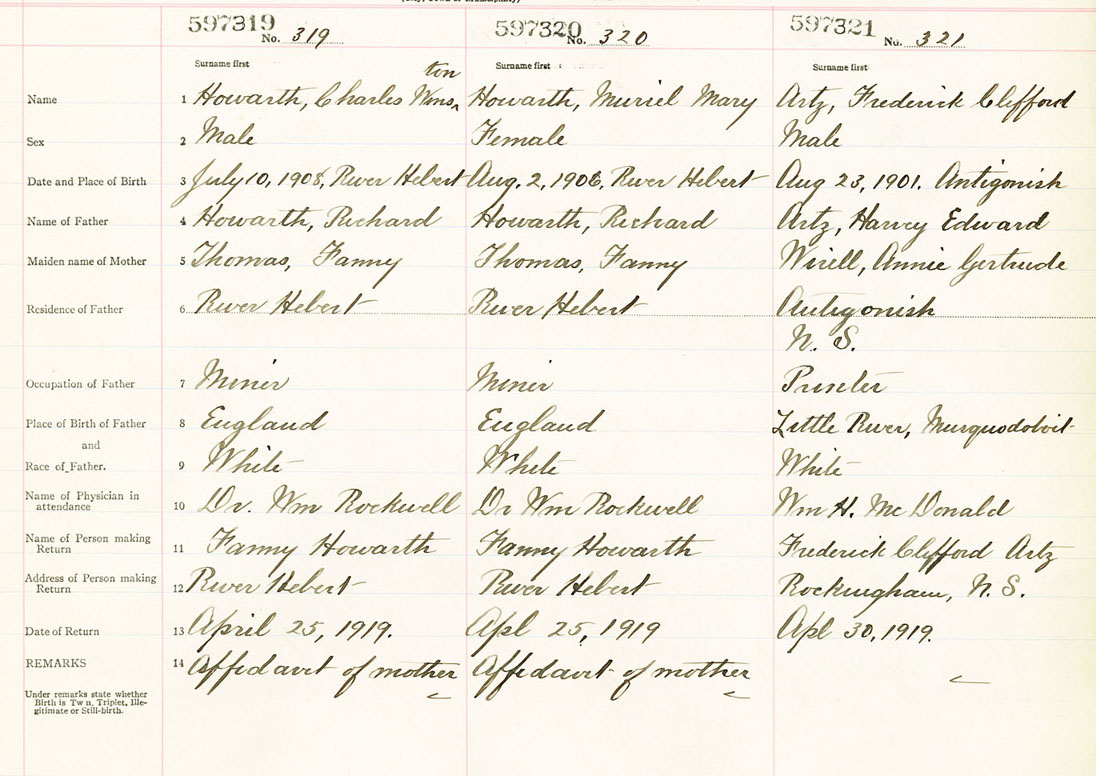 597319 No. 319 597320 No. 320 597321 No. 321
Surname first Surname first Surname first
Name 1 Howarth, Charles Winston Howarth, Muriel Mary Artz, Frederick Clifford
Sex 2 Male Female Male
Date and Place of Birth 3 July 10, 1908, River Hebert Aug. 2, 1906, River Hebert Aug 23, 1901. Antigonish
Name of Father 4 Howarth, Richard Howarth, Richard Artz, Harvey Edward
Maiden name of Mother 5 Thomas, Fanny Thomas, Fanny Annie Gertrude
Residence of Father 6 River Hebert River Hebert Antigonish
N. S.
Occupation of Father 7 Miner Miner Printer
Place of Birth of Father 8 England England Little River, Musquodoboit
and
Race of Father. 9 White White White
Name of Physician in
attendance 10 Dr. Wm Rockwell Dr Wm Rockwell Wm H. McDonald
Name of Person making
Return 11 Fanny Howarth Fanny Howarth Frederick Clifford Artz
Address of Person making
Return 12 River Hebert River Hebert Rockingham, N. S.
Date of Return 13 April 25, 1919. Apl 25, 1919 Apl 30, 1919.
REMARKS 14 Affidavit of mother Affidavit of mother
Under remarks state whether
Birth is Twin, Triplet, Ille-
gitimate or Still-birth.